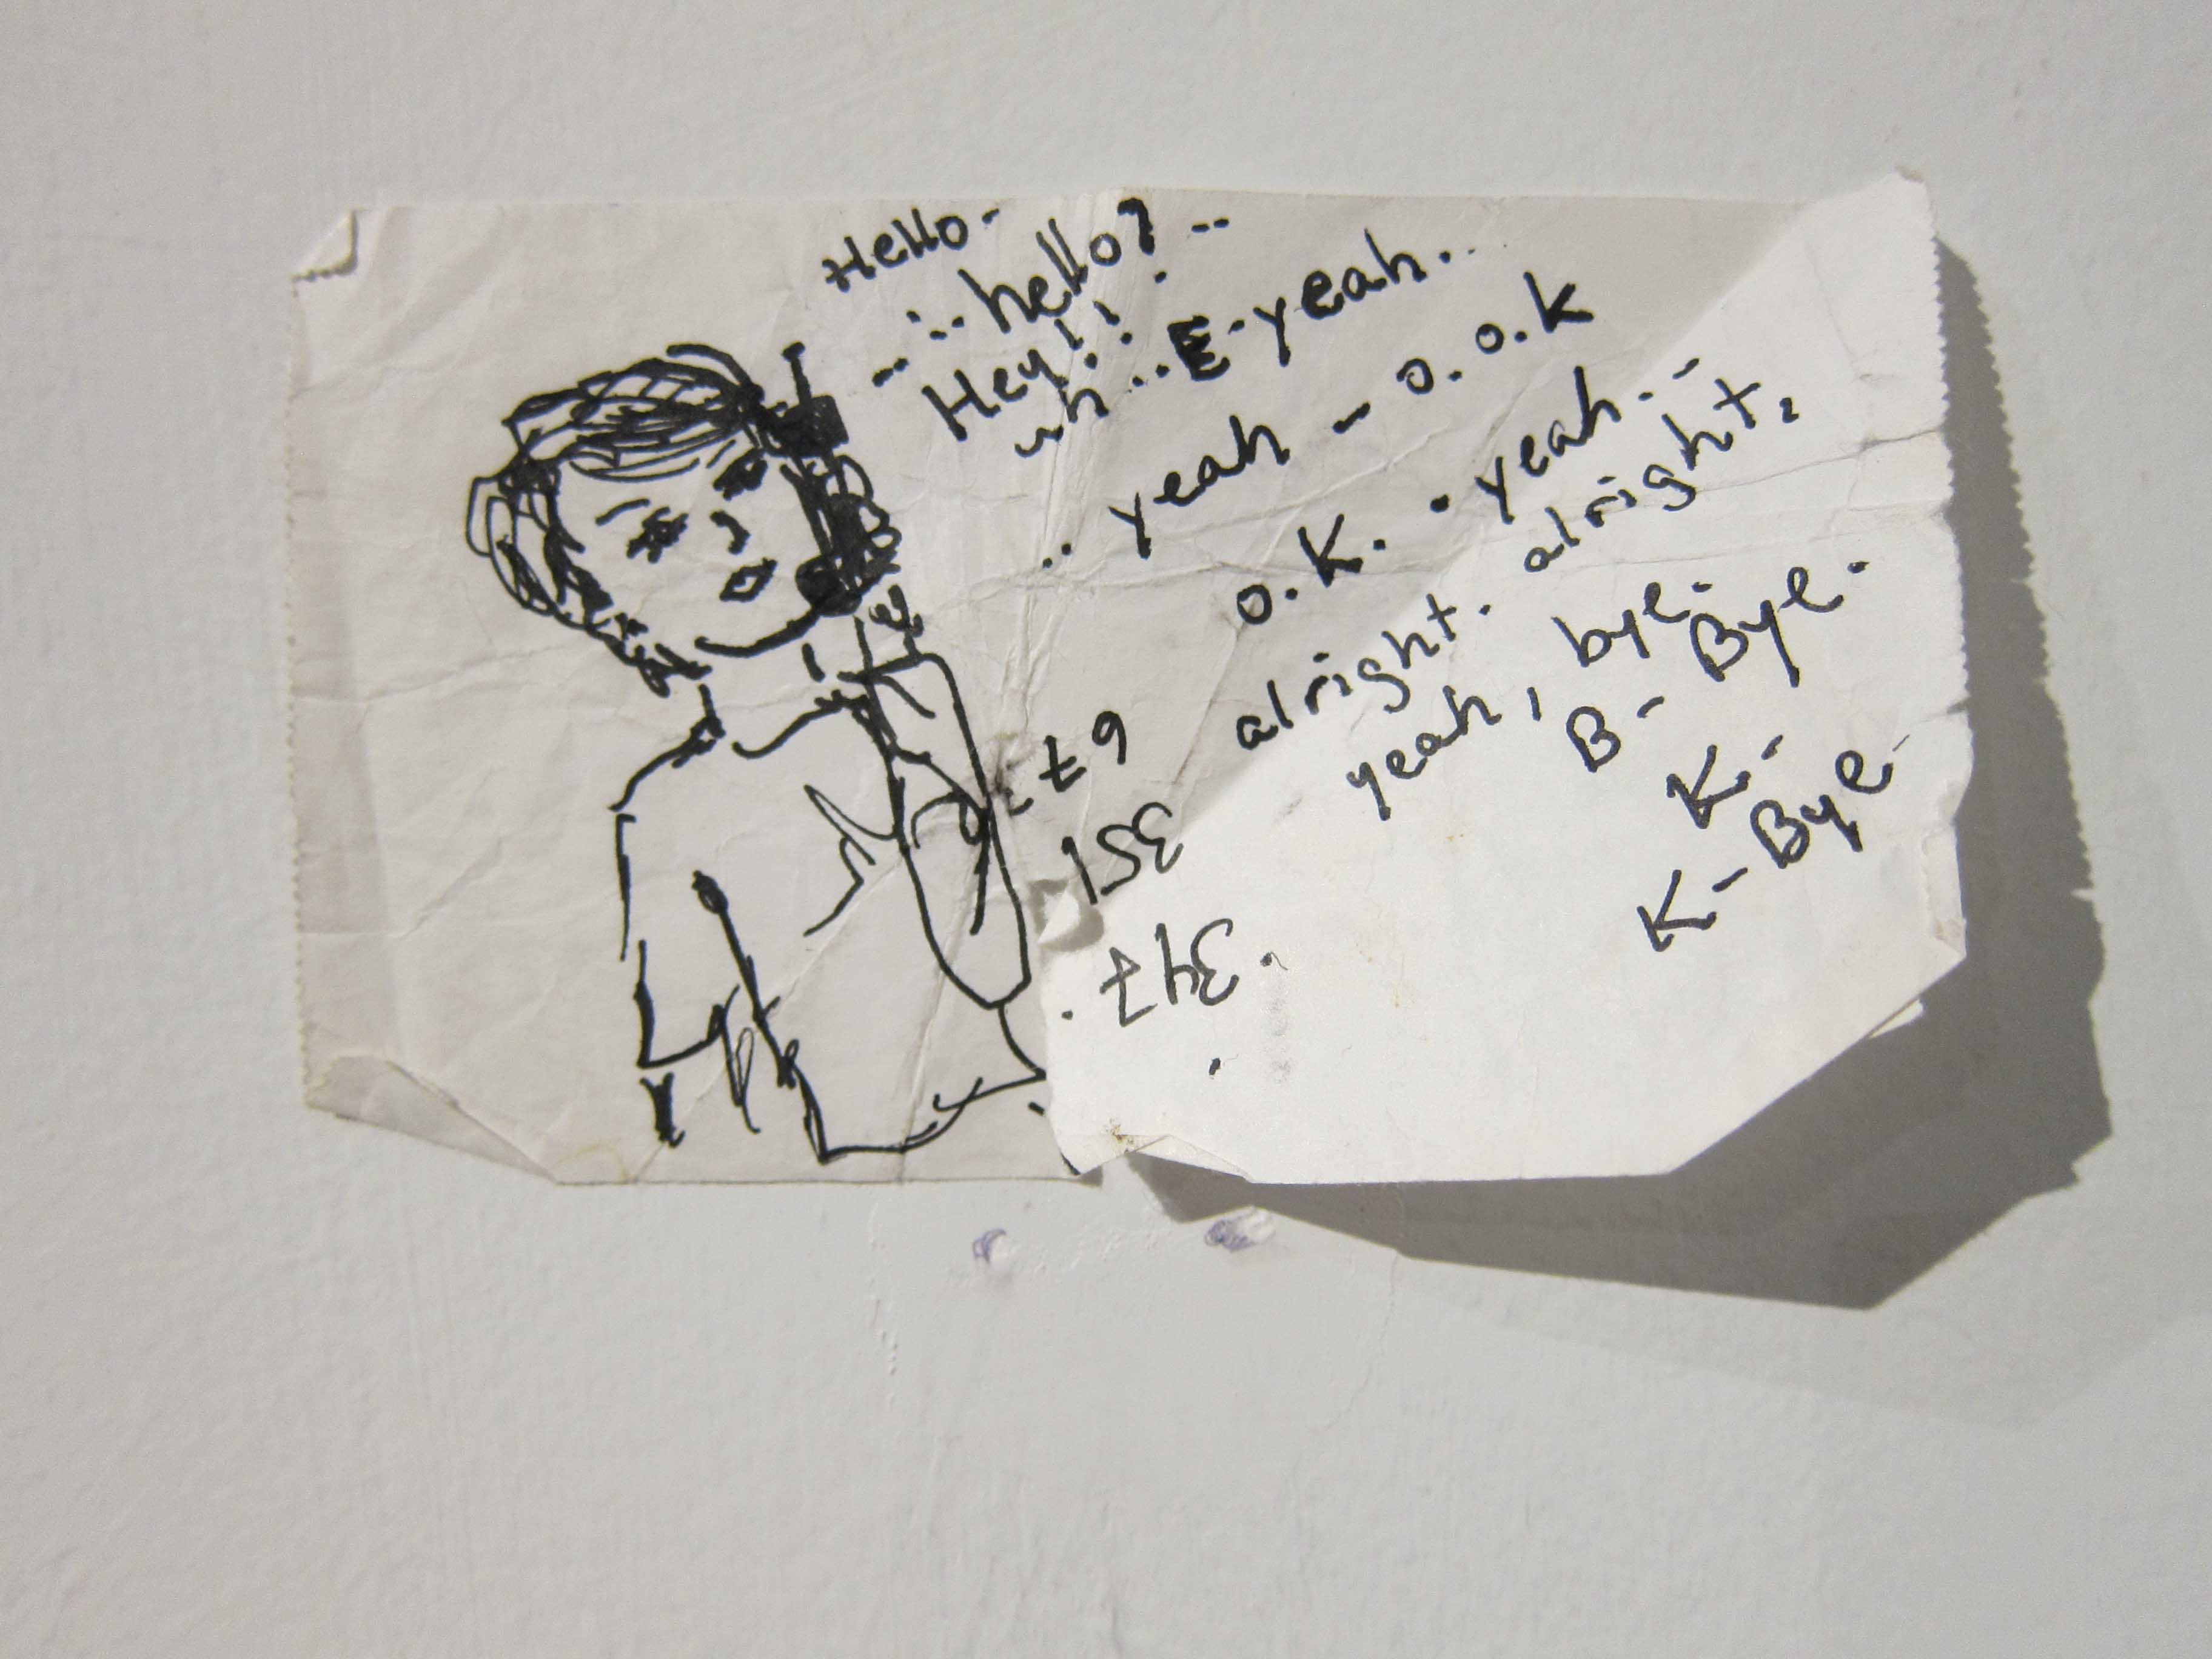 Hello-
... hello? --
-- Hey!!
uh... E-yeah..
.. yeah - o. o.k
o.k. . yeah. -
alright. alright,
yeah, bye.
B- Bye.
K.-
K- Bye.
347
351